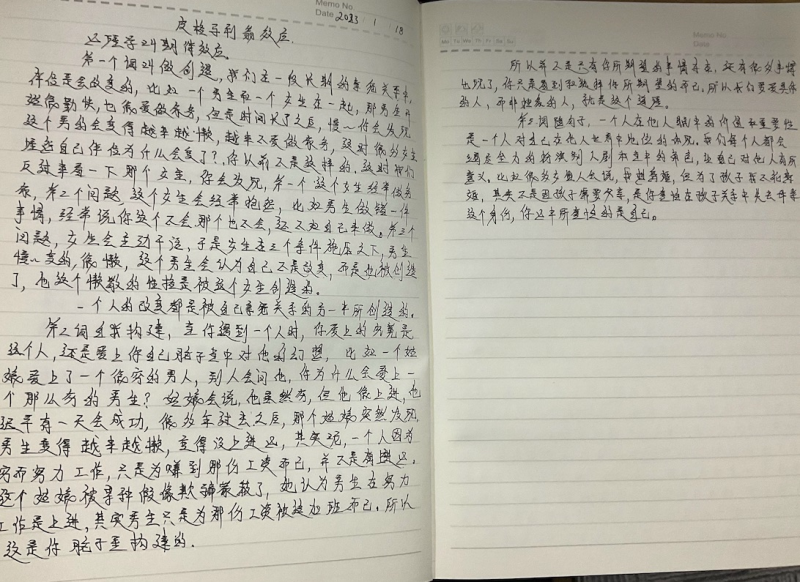 Memo No.
Date 2023 1 18
皮格马利翁效应.
心理学叫期待效应.
第一个词叫做创造, 我们在一段长期的亲密关系中,
伴侣是会改变的, 比如一个男生和一个女生在一起, 那男生开
始很勤快, 也很爱做家务, 但是时间长了之后, 慢慢你会发现
这个男的会变得越来越懒, 越来不爱做家务, 这时候女生
埋怨自己伴侣为什么会变了?, 你以前不是这样的. 这时我们
反过来看一下那个女生, 你会发现, 第一个这个女生经常做家
务, 第二个问题, 这个女生会经常抱怨, 比如男生做错一件
事情, 经常说你这个不会那个也不会, 还不如自己来做. 第三个
问题, 女生会主动干活, 于是女生在三个条件施压之下, 男生
慢慢变的, 很懒, 这个男生会认为自己不是改变, 而是他被创造
了, 他这个懒散的性格是被这个女生创造的.
一个人的改变都是被自己亲密关系的另一半所创造的.
第二词是架构建, 当你遇到一个人时, 你爱上的究竟是
这个人, 还是爱上你自己脑子里中对他的幻想, 比如一个姑
娘爱上了一个很穷的男人, 别人会问他, 你为什么会爱上一
个那么穷的男生? 姑娘会说, 他虽然穷, 但他很上进, 他
迟早有一天会成功, 很多年过去之后, 那个姑娘突然发现,
男生变得越来越懒, 变得没上进心, 其实呢, 一个人因为
穷而努力工作, 只是为赚到那份工资而已, 并不是有上进心.
这个姑娘被寻种假像欺骗蒙蔽了, 她认为男生在努力
工作是上进, 其实男生只是为那份工资被迫加班而已. 所以
这是你脑子里构建的.
Memo No.
Date
所以并不是只有你所期望的事情存在, 还有很多事情
也况了, 你只是看到和选择你所期望的而已, 所以我们要爱具体
的人, 而非抽象的人, 就是这个道理.
第三词随为了, 一个人在他人眼中的价值和重要性
是一个人对自己在他人世界中地位的体现. 我们每个人都会
竭尽全力的扮演别人剧本当中的角色, 让自己对他人有所
意义, 比如很多女人会说, 我想离婚, 但为了孩子我不能离
婚, 其实不是因孩子需要父亲, 是你害怕在孩子关系中失去母亲
这个身份, 你这中所害怕的是自己.